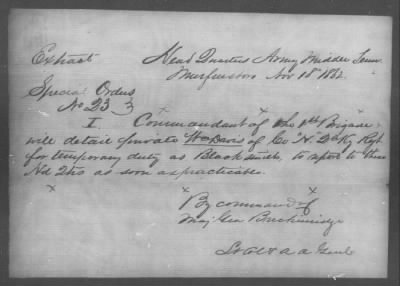 Extract
Head Quarters Army Middle Tenn
Murfreesboro Nov 18th 1862
Special Orders
No 23
I Commandant of the 1st Brigade
will detail private Wm Davis of Co "H" 2d Ky Regt
for temporary duty as Blacksmith, to report to these
Hd Qrs as soon as practicable.
x x x
By command of
Maj Gen Breckinridge
A A Genl